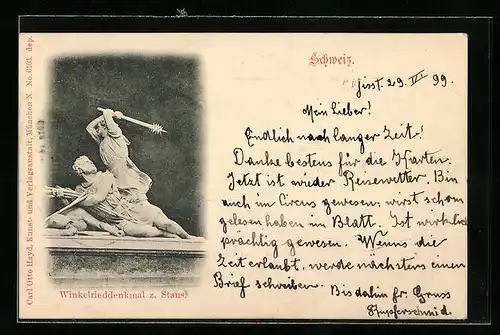 Carl Otto Hayd, Kunst- und Verlagsanstalt, München N. No. 6193. dep.
Schweiz.
29. VII 99.
Mein Lieber!
Endlich nach langer Zeit!
Danke bestens für die Karten.
Jetzt ist wieder Reisewetter. Bin
auch im Circus gewesen, wirst schon
gelesen haben im Blatt. Ist wirklich
prächtig gewesen. Wenns die
Zeit erlaubt, werde nächstens einen
Brief schreiben. Bis dahin fr. Gruss
Kupferschmid.
Winkelrieddenkmal z. Stans